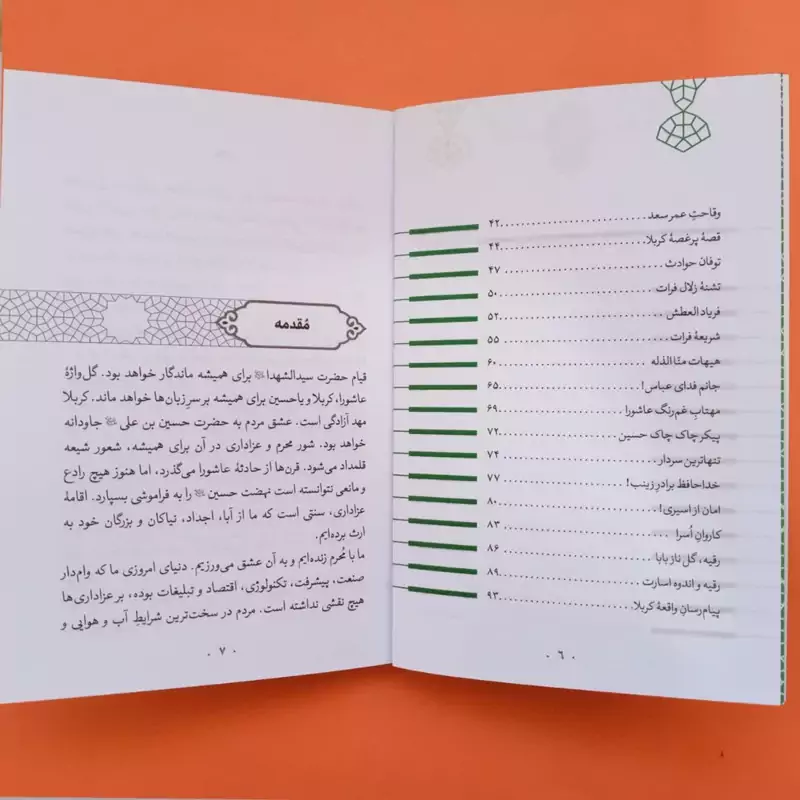 وقاحتِ عمر سعد ........................ ۴۲
قصهٔ پرغصهٔ کربلا ........................ ۴۴
توفان حوادث ........................ ۴۷
تشنهٔ زلال فرات ........................ ۵۰
فریاد العطش ........................ ۵۲
شریعهٔ فرات ........................ ۵۵
هیهات منّا الذله ........................ ۶۰
جانم فدای عباس! ........................ ۶۵
مهتابِ غم‌رنگ عاشورا ........................ ۶۹
پیکر چاک چاک حسین ........................ ۷۲
تنهاترین سردار ........................ ۷۴
خداحافظ برادرِ زینب! ........................ ۷۷
امان از اسیری! ........................ ۸۰
کاروانِ اُسرا ........................ ۸۳
رقیه، گل ناز بابا ........................ ۸۶
رقیه و اندوه اسارت ........................ ۸۹
پیام‌رسانِ واقعهٔ کربلا ........................ ۹۳
۰ ۶ ۰
مُقدمه
قیام حضرت سیدالشهدا برای همیشه ماندگار خواهد بود. گل‌واژهٔ
عاشورا، کربلا و یاحسین برای همیشه بر سرِ زبان‌ها خواهد ماند. کربلا
مهد آزادگی است. عشق مردم به حضرت حسین بن علی جاودانه
خواهد بود. شور محرم و عزاداری در آن برای همیشه، شعور شیعه
قلمداد می‌شود. قرن‌ها از حادثهٔ عاشورا می‌گذرد، اما هنوز هیچ رادع
و مانعی نتوانسته است نهضت حسین را به فراموشی بسپارد. اقامهٔ
عزاداری، سنتی است که ما از آبا، اجداد، نیاکان و بزرگان خود به
ارث برده‌ایم.
ما با مُحرم زنده‌ایم و به آن عشق می‌ورزیم. دنیای امروزی ما که وام‌دار
صنعت، پیشرفت، تکنولوژی، اقتصاد و تبلیغات بوده، بر عزاداری‌ها
هیچ نقشی نداشته است. مردم در سخت‌ترین شرایطِ آب و هوایی و
۰ ۷ ۰